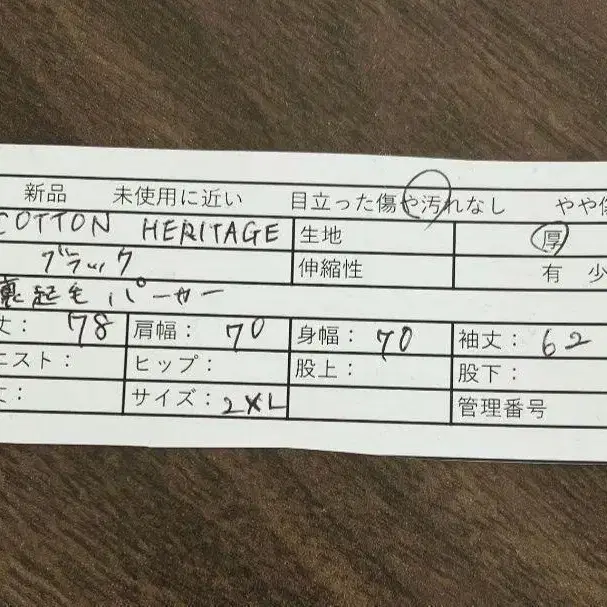 新品 未使用に近い 目立った傷や汚れなし やや
COTTON HERITAGE 生地 厚
ブラック 伸縮性 有 少
裏起毛パーカー
丈： 78 肩幅： 70 身幅： 70 袖丈： 62
エスト： ヒップ： 股上： 股下：
丈： サイズ： 2XL 管理番号